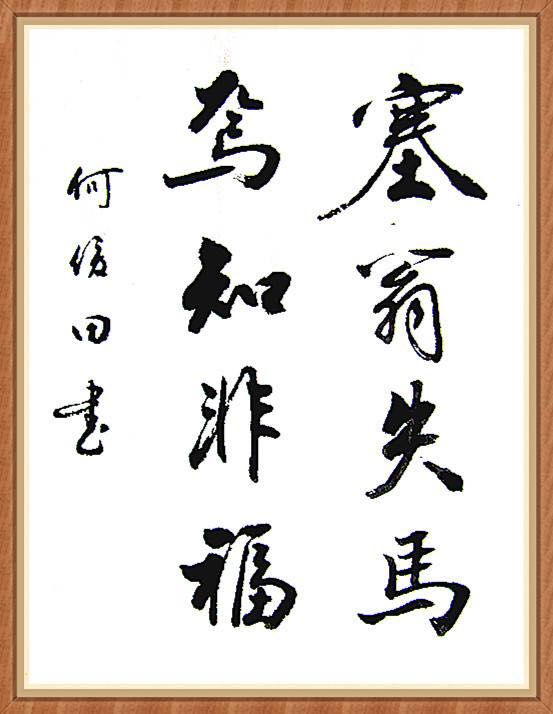 塞翁失馬
焉知非福
何俊田書